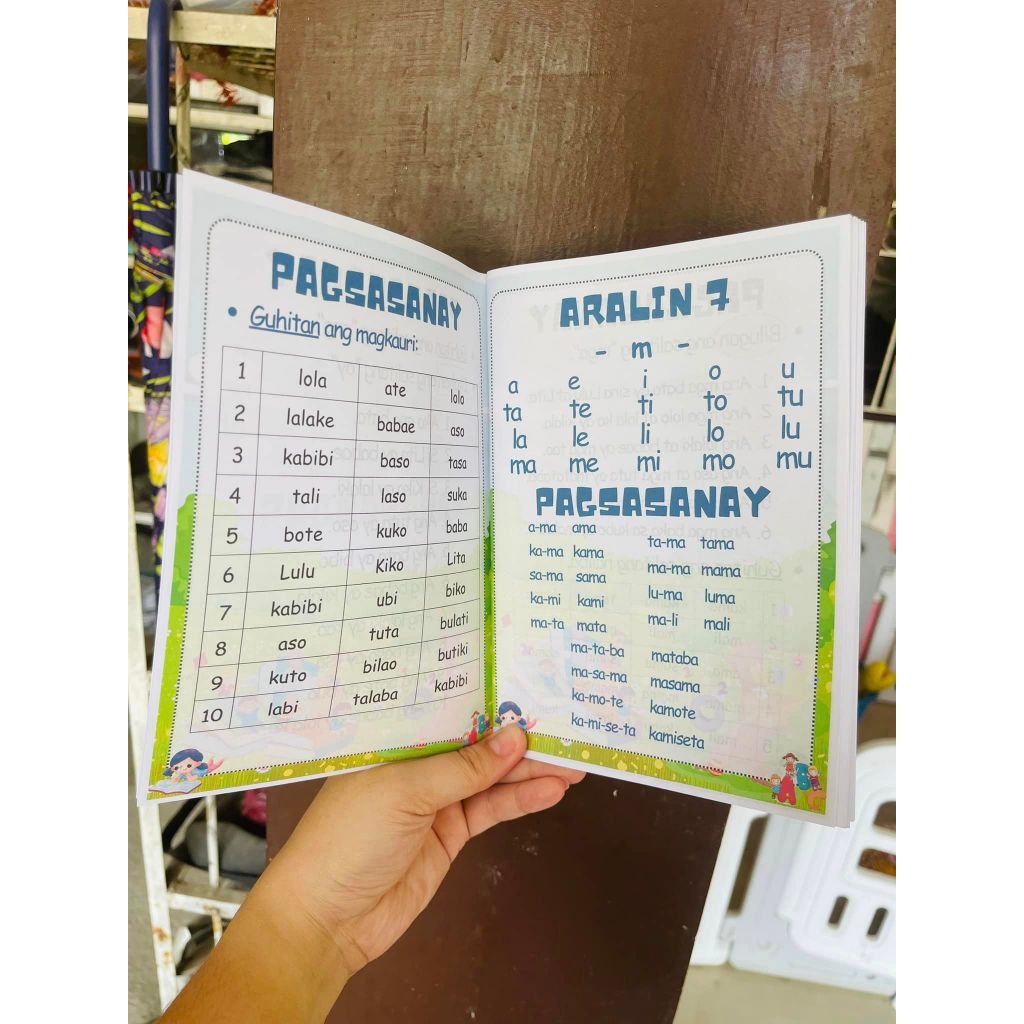 PAGSASANAY
• Guhitan ang magkauri:
1 lola ate lolo
2 lalake babae aso
3 kabibi baso tasa
4 tali laso suka
5 bote kuko baba
6 Lulu Kiko Lita
7 kabibi ubi biko
8 aso tuta bulati
9 kuto bilao butiki
10 labi talaba kabibi
ARALIN 7
- m -
a e i o u
ta te ti to tu
la le li lo lu
ma me mi mo mu
PAGSASANAY
a-ma ama ta-ma tama
ka-ma kama ma-ma mama
sa-ma sama lu-ma luma
ka-mi kami ma-li mali
ma-ta mata
ma-ta-ba mataba
ma-sa-ma masama
ka-mo-te kamote
ka-mi-se-ta kamiseta